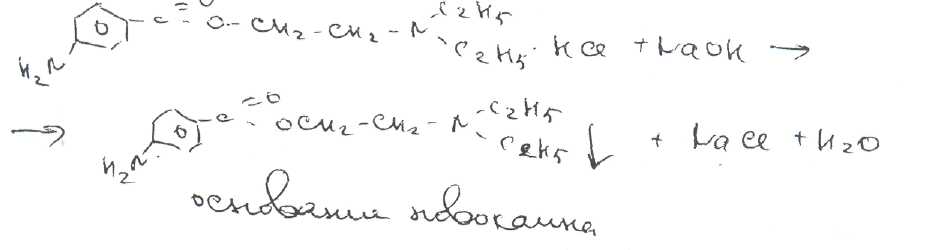 H₂N C = O O - CH₂ - CH₂ - N C₂H₅ C₂H₅ · HCl + NaOH →
→ H₂N C = O OCH₂ - CH₂ - N C₂H₅ C₂H₅ ↓ + NaCl + H₂O
основание новокаина